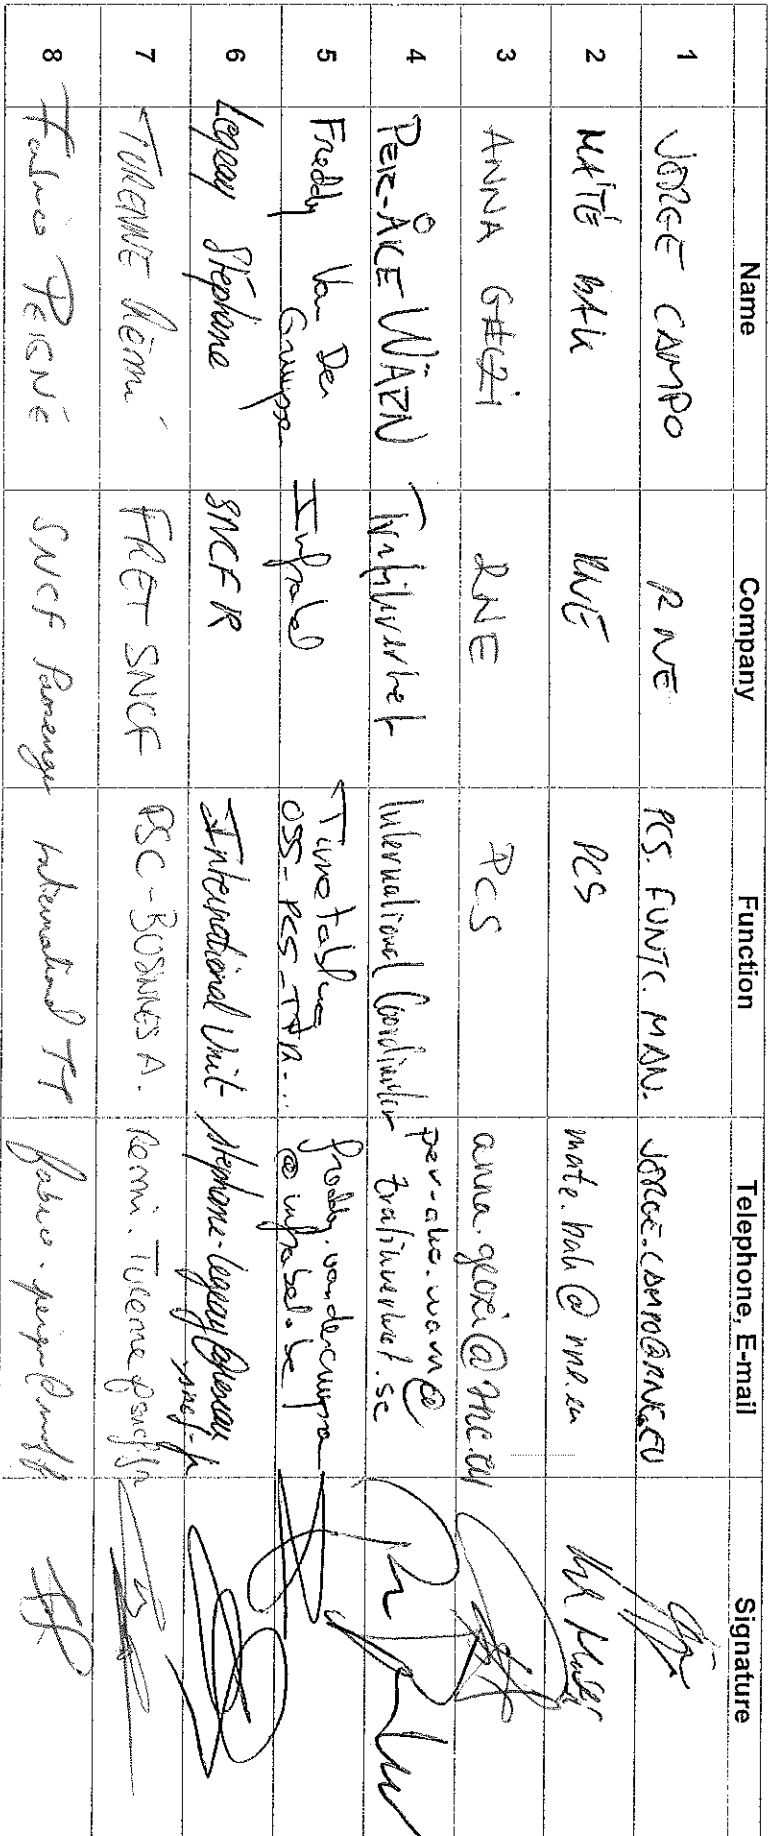 Name Company Function Telephone, E-mail Signature
1 JORGE CAMPO RNE PCS. FUNTC. MAN. JORGE.CAMPO@RNE.EU
2 MATÉ BAK RNE PCS mate.bak@rne.eu
3 ANNA GHUZI RNE PCS anna.@rne.eu
4 PER-ÅKE WÄRN Trafikverket International Coordinator per-ake.warn@
trafikverket.se
5 Freddy Van Den Infrabel Timetabling freddy.vandencruyssen
Cruyssen OSS-PCS-TTR... @infrabel.be
6 Legeay Stéphane SNCF R International Unit stephane.legeay@reseau
.sncf.fr
7 TURENNE Rémi FRET SNCF PSC-BUSINNES A. Remi.Turenne@sncf.fr
8 Fabrice PEIGNÉ SNCF Passenger International TT fabrice.peigne@sncf.fr